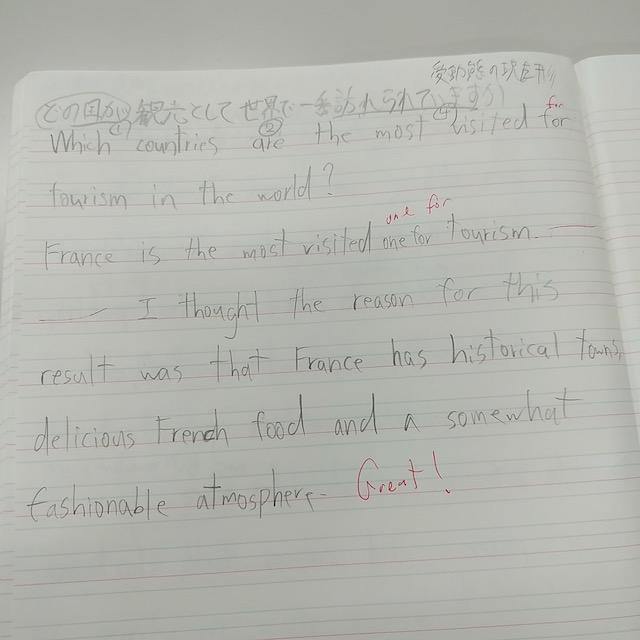 受動態の現在形
どの国が観光として世界で一番訪れられていますか
(1) (2) (4) for
Which countries are the most visited for
tourism in the world?
one for
France is the most visited one for tourism.
I thought the reason for this
result was that France has historical towns,
delicious French food and a somewhat
fashionable atmosphere. Great!